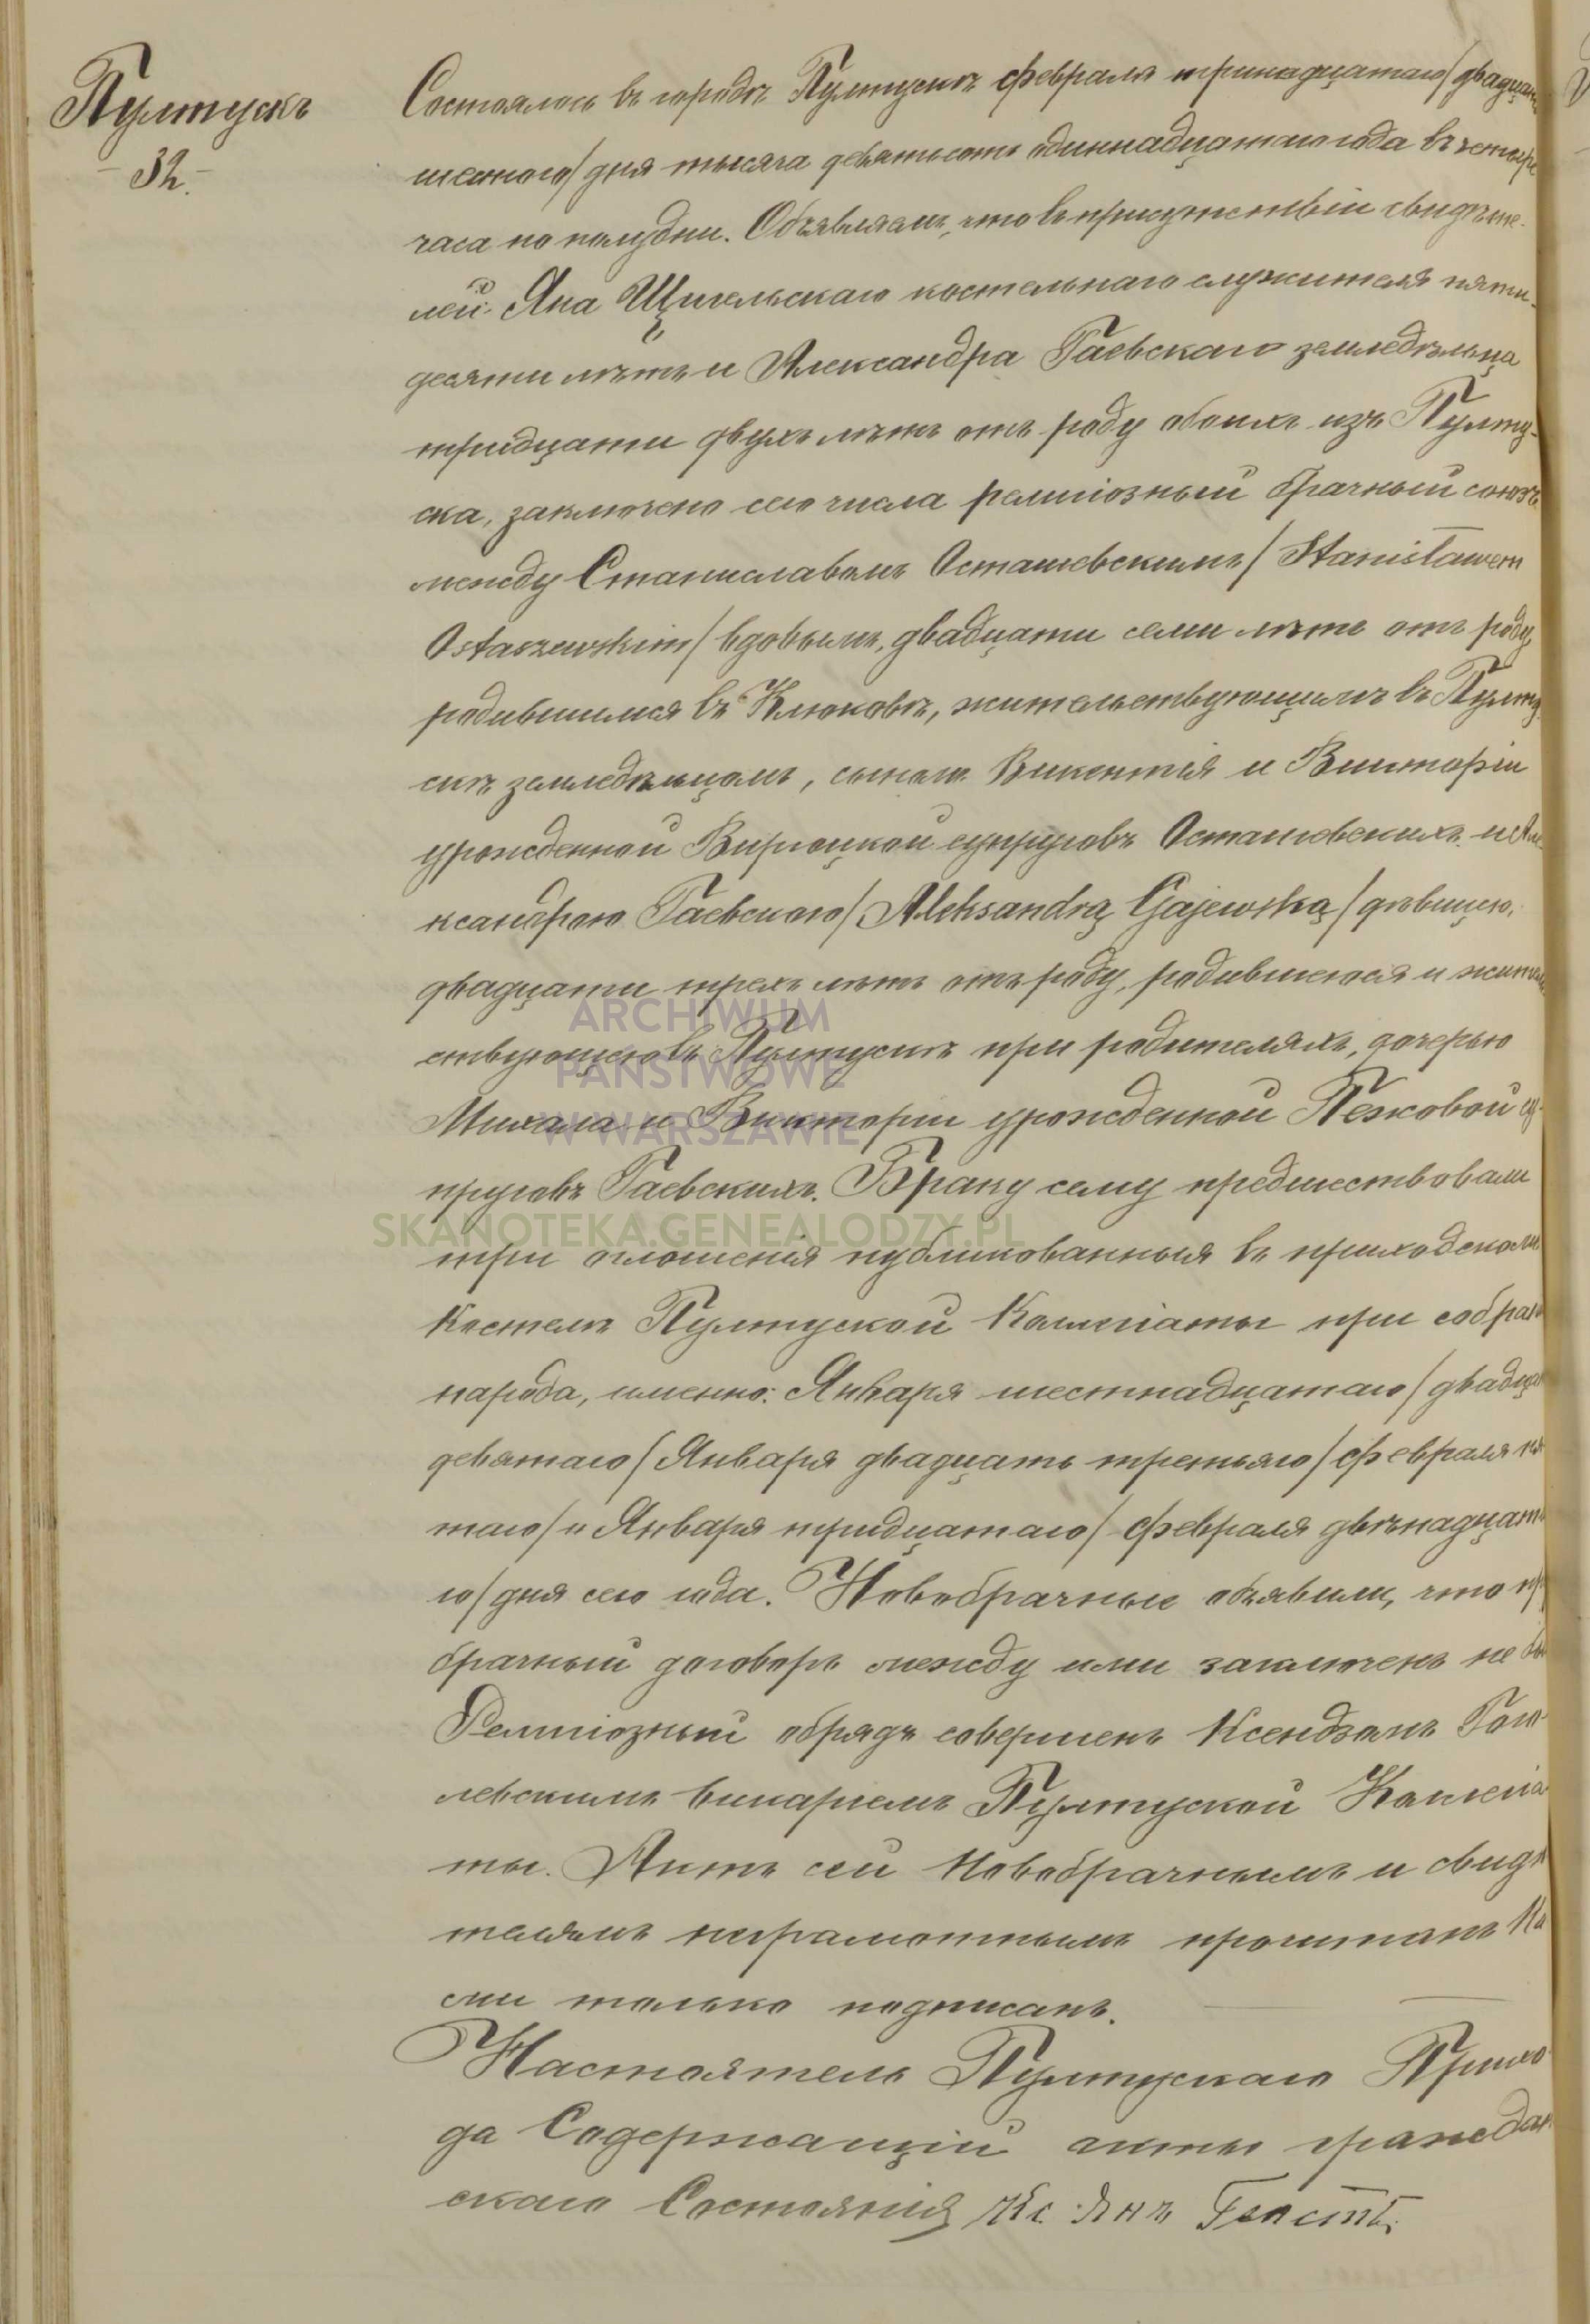 Пултускъ
- 32. -
Состоялось въ городѣ Пултускѣ февраля тринадцатаго/двадцать
шестого/дня тысяча девятьсотъ одиннадцатаго года въ четыре
часа по полудни. Объявляемъ, что въ присутствіи свидѣте-
лей: Яна Щигельскаго костельнаго служителя пяти-
десяти лѣтъ и Александра Гаевскаго земледѣльца
тридцати двухъ лѣтъ отъ роду обоихъ изъ Пулту-
ска, заключено сего числа религіозный брачный союзъ
между Станиславомъ Осташевскимъ/Stanisławem
Ostaszewskim/вдовымъ, двадцати семи лѣтъ отъ роду,
родившимся въ Клюковѣ, жительствующимъ въ Пулту-
скѣ земледѣльцемъ, сыномъ Викентія и Викторіи
урожденной супруговъ Осташевскихъ. и Але-
ксандрою Гаевскою/Aleksandrą Gajewską/дѣвицею,
двадцати трехъ лѣтъ отъ роду, родившеюся и житель
ствующею въ Пултускѣ при родителяхъ, дочерью
Михала и Викторіи урожденной Пежковой су-
пруговъ Гаевскихъ. Браку сему предшествовали
три оглошенія публикованныя въ приходскомъ
Костелѣ Пултуской Коллегіаты при собраніи
народа, именно: Января шестнадцатаго/двадцать
девятаго/Января двадцать третьяго/февраля пя
таго/и Января тридцатаго/февраля двѣнадцата
го/дня сего года. Новобрачные объявили, что пр
брачный договоръ между ими заключенъ не бы
Религіозный обрядъ совершенъ Ксендзомъ Гого-
левскимъ викаріемъ Пултуской Коллегіа
ты. Актъ сей Новобрачнымъ и свидѣ
телямъ неграмотнымъ прочитанъ На
ми только подписанъ.
Настоятель Пултускаго Прихо
да Содержащій акты граждан
скаго Состоянія Кс. Янъ
ARCHIWUM
PAŃSTWOWE
W WARSZAWIE
SKANOTEKA.GENEALODZY.PL